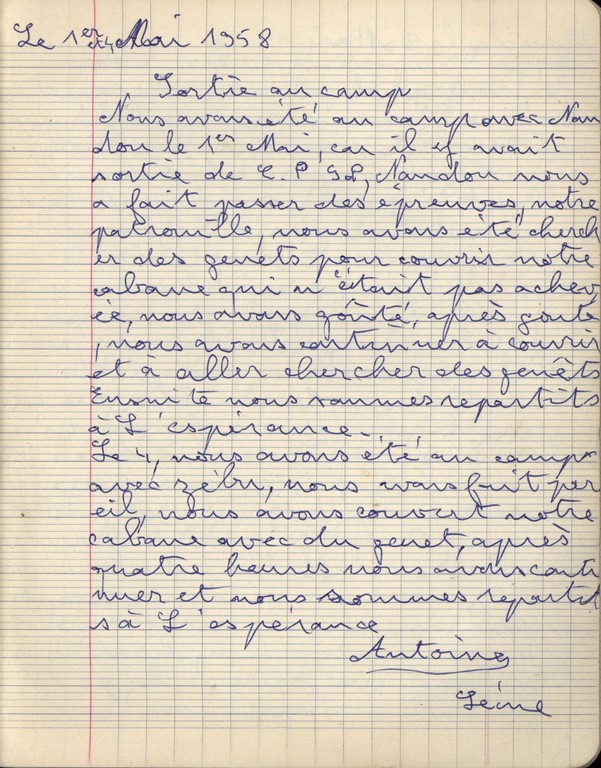 Le 1er et 4, Mai 1958
Sortie au camp
Nous avons été au camp avec Nan
dou le 1er Mai, car il y avait
sortie de C. P
Nandou nous
a fait passer des épreuves, notre
patrouille, nous avons été cherch
er des genêts pour couvrir notre
cabane qui n'était pas achev
ée, nous avons goûté, après gouté
, nous avons continuer à couvrir
et à aller chercher des genêts
Ensuite nous sommes repartits
à L'espérance.
Le 4, nous avons été au camp
avec zébu, nous avons fait par
eil, nous avons couvert notre
cabane avec du genet, après
quatre heures nous avons conti
nuer et nous sommes repartit
s à L'espérance
Antoine